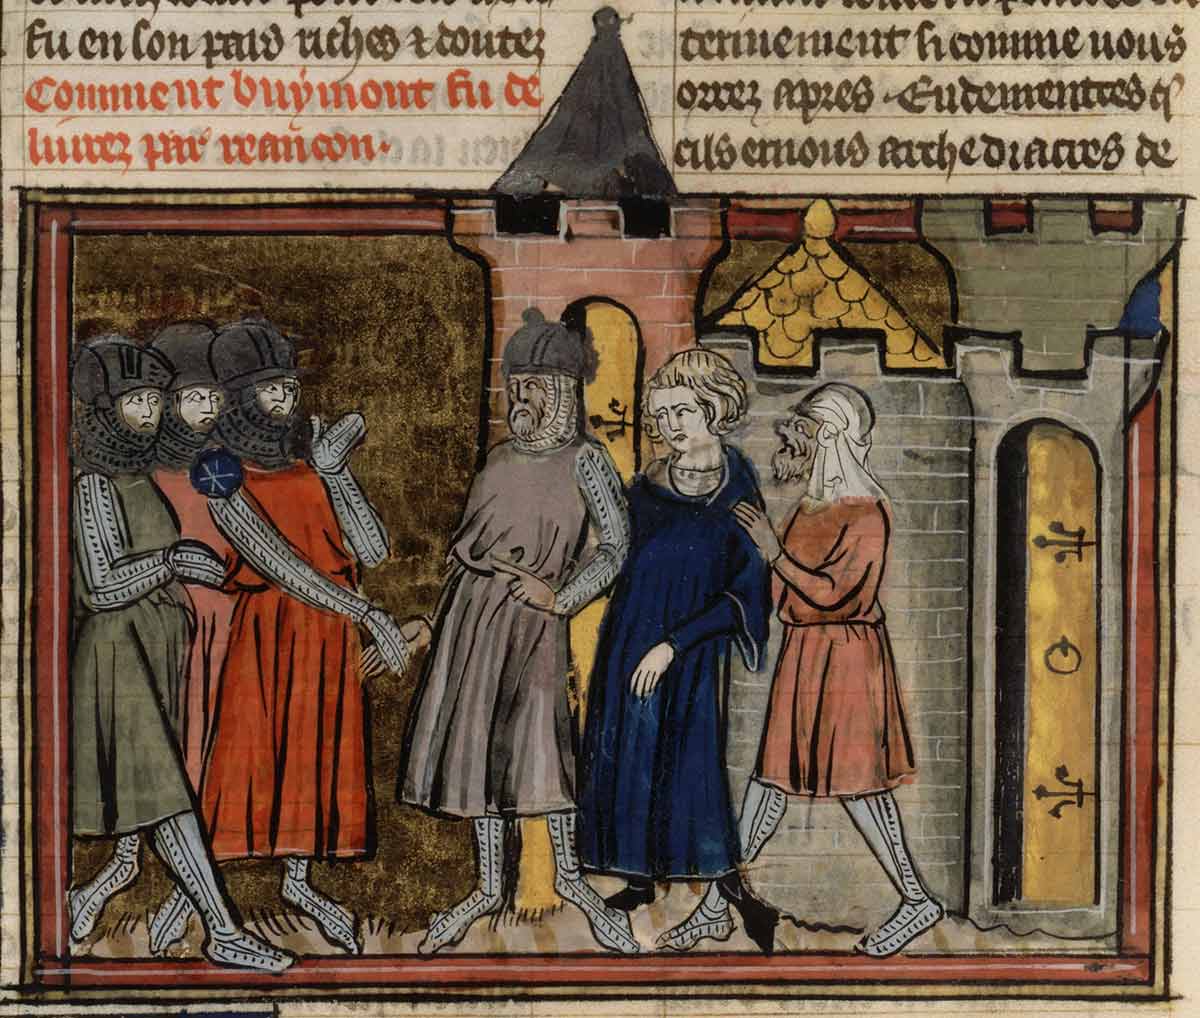 fu en son païs riches ⁊ doutez
Comment buymont fu de
liurez par reançon.
terinement si comme uous
orrez apres. Endementres q̃
cils ernous archediacres de